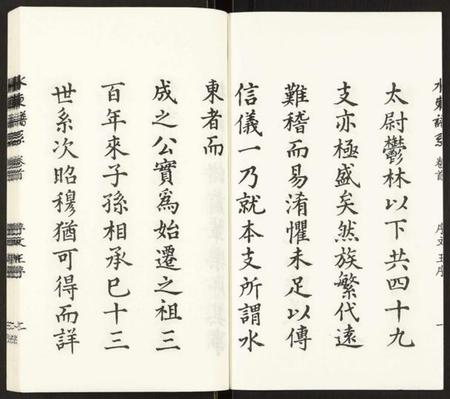 水東譜系 卷首 序文 王序 一
太尉鬱林以下共四十九
支亦極盛矣然族繁代遠
難稽而易淆懼未足以傳
信儀一乃就本支所謂水
東者而
成之公實爲始遷之祖三
百年來子孫相承巳十三
世系次昭穆猶可得而詳
水東譜系 卷首